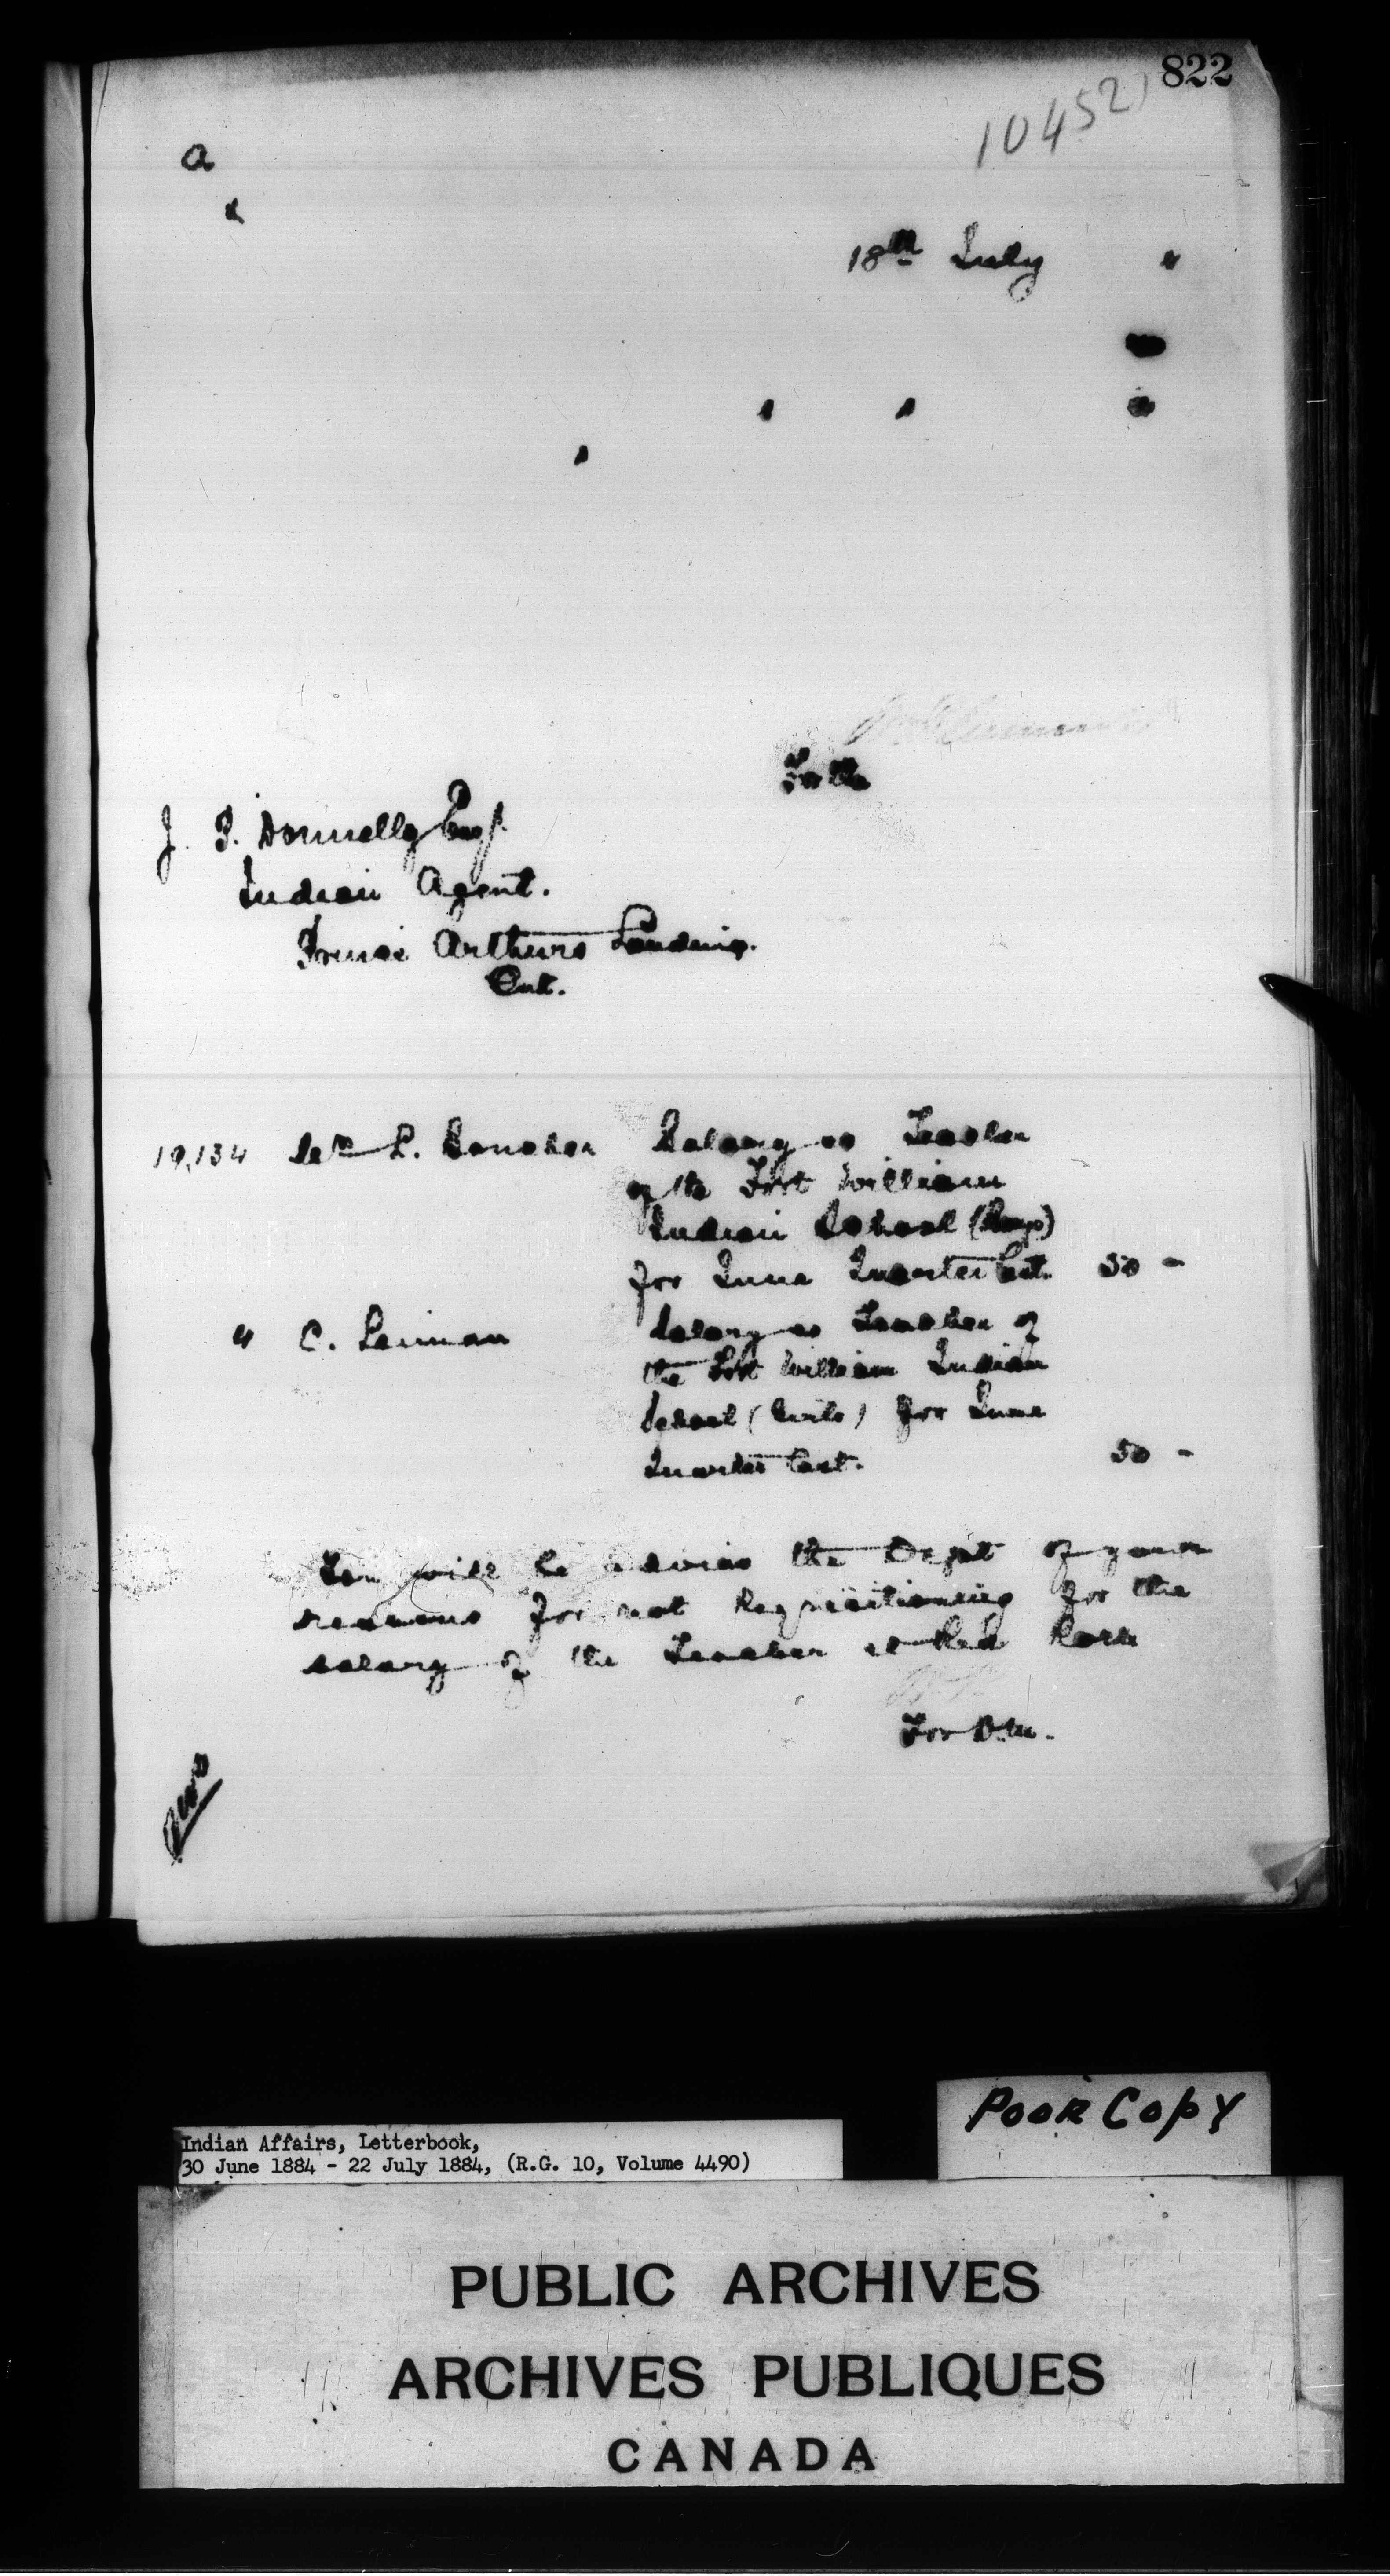 822
10452
a
18th July
For the
J. P. Donnelly Esq.
Indian Agent.
Prince Arthurs Landing.
Ont.
19,134 Salary as Teacher
of the Fort William
Indian School (Boys)
for June Quarter 50 -
" C. Salary as Teacher of
the Fort William Indian
School (Girls) for June
Quarter 50 -
You will advise the Dept of your
reasons for not Requisitioning for the
salary of the Teacher at Red Rock
For
Poor Copy
Indian Affairs, Letterbook,
30 June 1884 - 22 July 1884, (R.G. 10, Volume 4490)
PUBLIC ARCHIVES
ARCHIVES PUBLIQUES
CANADA